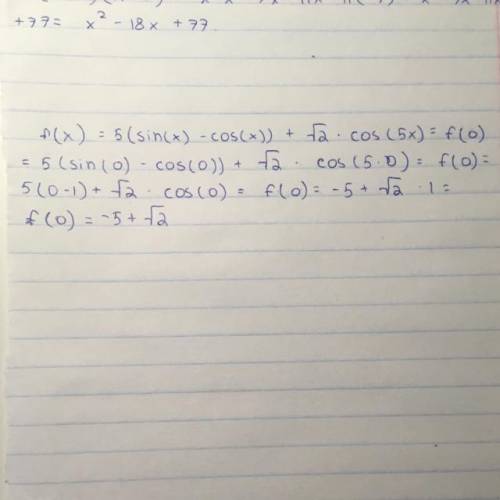 +77= x² - 18x +77
f(x) = 5(sin(x) - cos(x)) + √2 · cos(5x) = f(0)
= 5(sin(0) - cos(0)) + √2 · cos(5·0) = f(0)=
5(0-1) + √2 · cos(0) = f(0) = -5 + √2 · 1 =
f(0) = -5 + √2